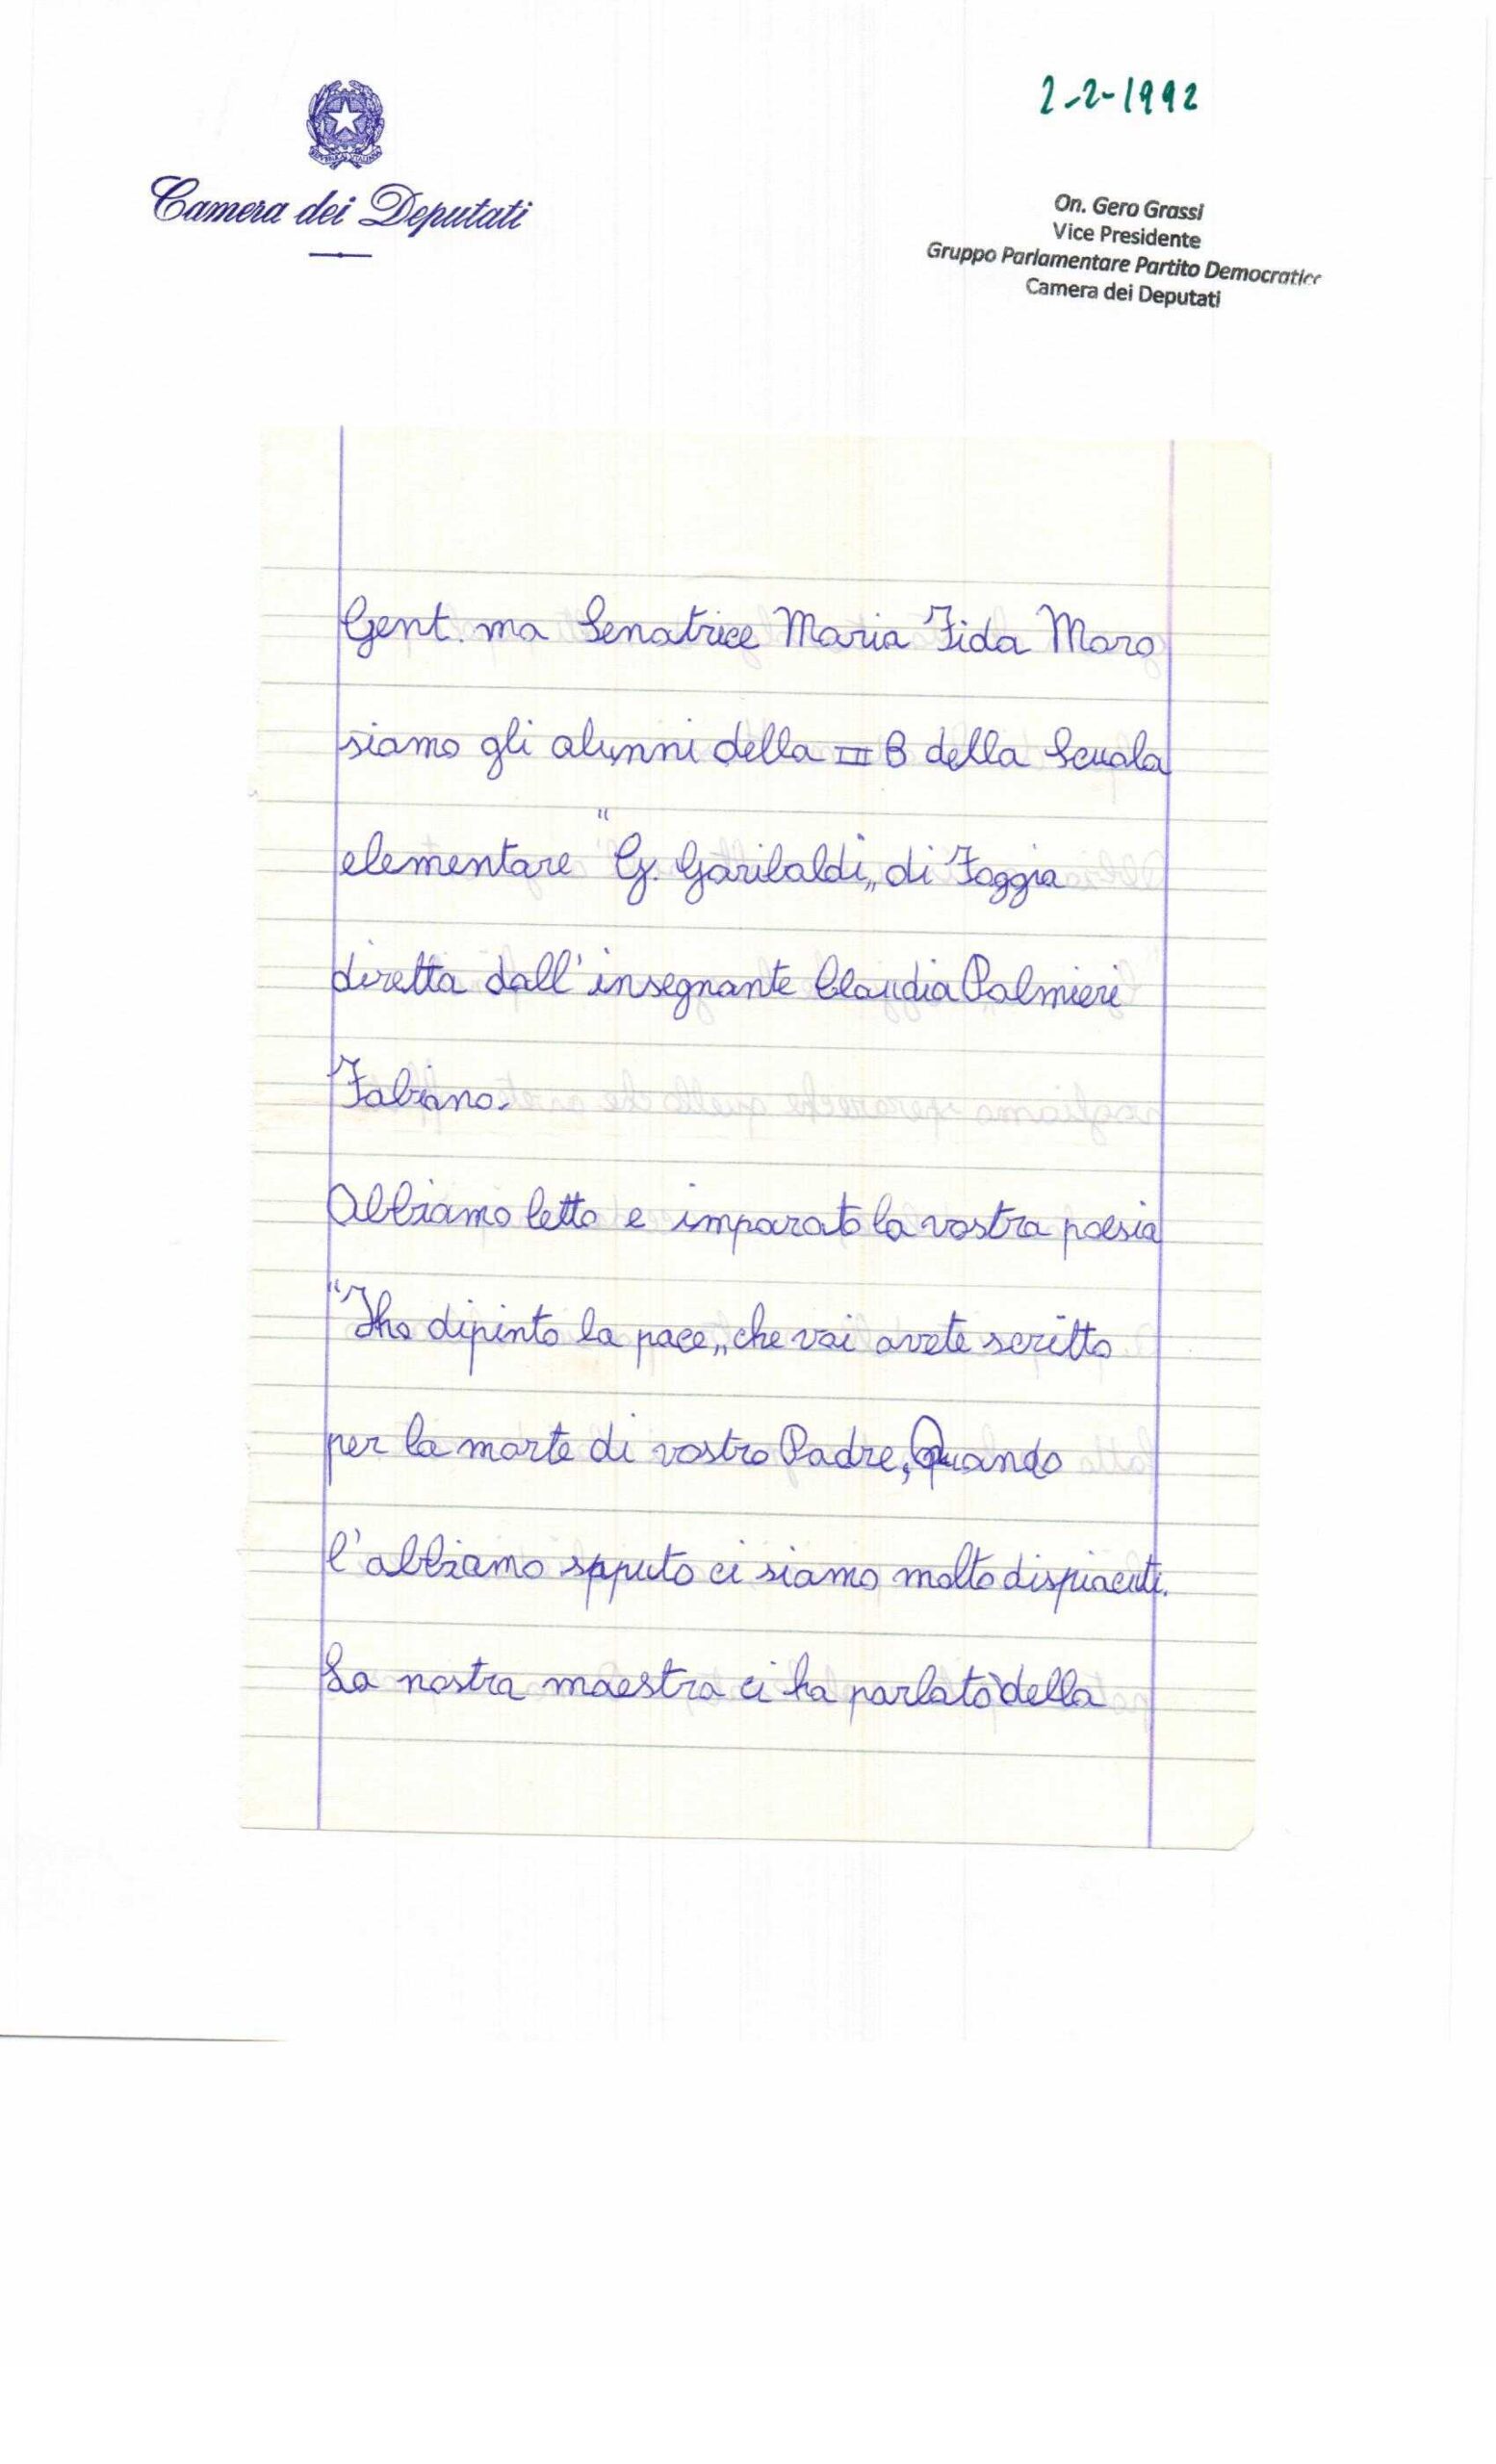 2-2-1992
REPVBBLICA ITALIANA
Camera dei Deputati
On. Gero Grassi
Vice Presidente
Gruppo Parlamentare Partito Democratico
Camera dei Deputati
Gent.ma Senatrice Maria Fida Moro
siamo gli alunni della III B della Scuola
elementare "G. Garibaldi„ di Foggia
diretta dall'insegnante Claudia Palmieri
Fabiano.
Abbiamo letto e imparato la vostra poesia
"Ho dipinto la pace„ che voi avete scritto
per la morte di vostro Padre, Quando
l'abbiamo sputo ci siamo molto dispiaciuti.
La nostra maestra ci ha parlato della